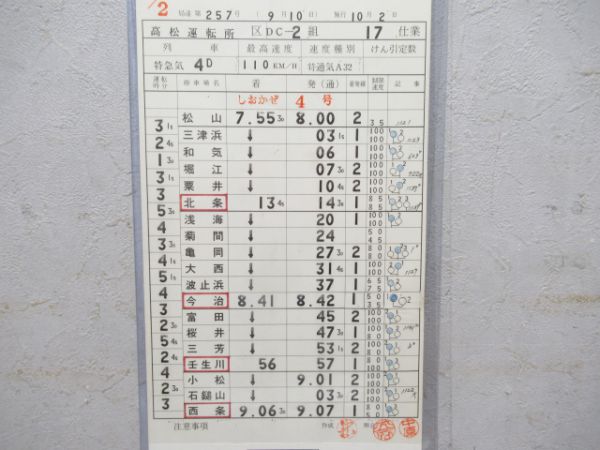 /2 局達第257号 (9月10日) 施行10月2日
高松運転所 区DC-2組 17仕業
列車 最高速度 速度種別 けん引定数
特急気 4D 110KM/H 停通気A32
運転時分 停車場名 着 発(通) 着発線 制限速度 記事
しおかぜ 4号
松山 7.55 30 8.00 2 35
3 15 三津浜 ↓ 03 15 1 100 100
2 45 和気 ↓ 06 1 100 100
1 30 堀江 ↓ 07 30 2 100 100
3 15 粟井 ↓ 10 45 2 100 100
3 北条 13 45 14 30 1 85 85
5 30 浅海 ↓ 20 1 85 85
4 菊間 ↓ 24 50 45
3 30 亀岡 ↓ 27 30 2 80 80
4 15 大西 ↓ 31 45 1 100 100
5 15 波止浜 ↓ 37 1 75 75
4 今治 8.41 8.42 1 50 35
3 富田 ↓ 45 2 100 100
2 30 桜井 ↓ 47 30 1 80 80
5 45 三芳 ↓ 53 15 2 100 100
2 45 壬生川 56 57 1 80 80
4 小松 ↓ 9.01 2 100 100
2 30 石鎚山 ↓ 03 30 2 100 100
3 西条 9.06 30 9.07 1 80 50
注意事項 作成